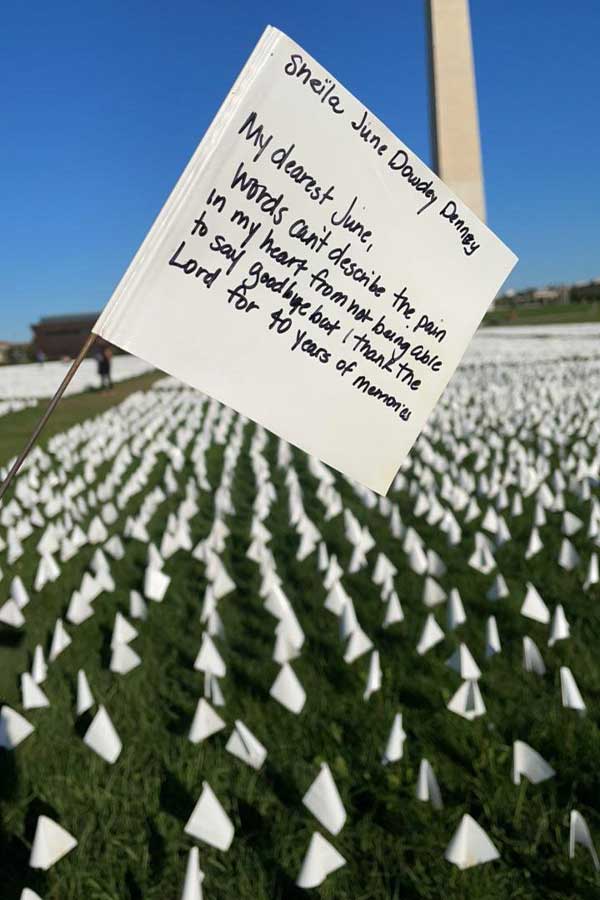 Sheila June Dowdey Denney
My dearest June,
Words can't describe the pain
in my heart from not being able
to say goodbye but I thank the
Lord for 40 years of memories